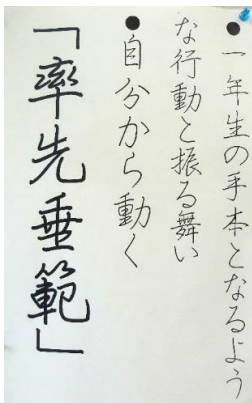 ●一年生の手本となるよう
な行動と振る舞い
●自分から動く
「率先垂範」